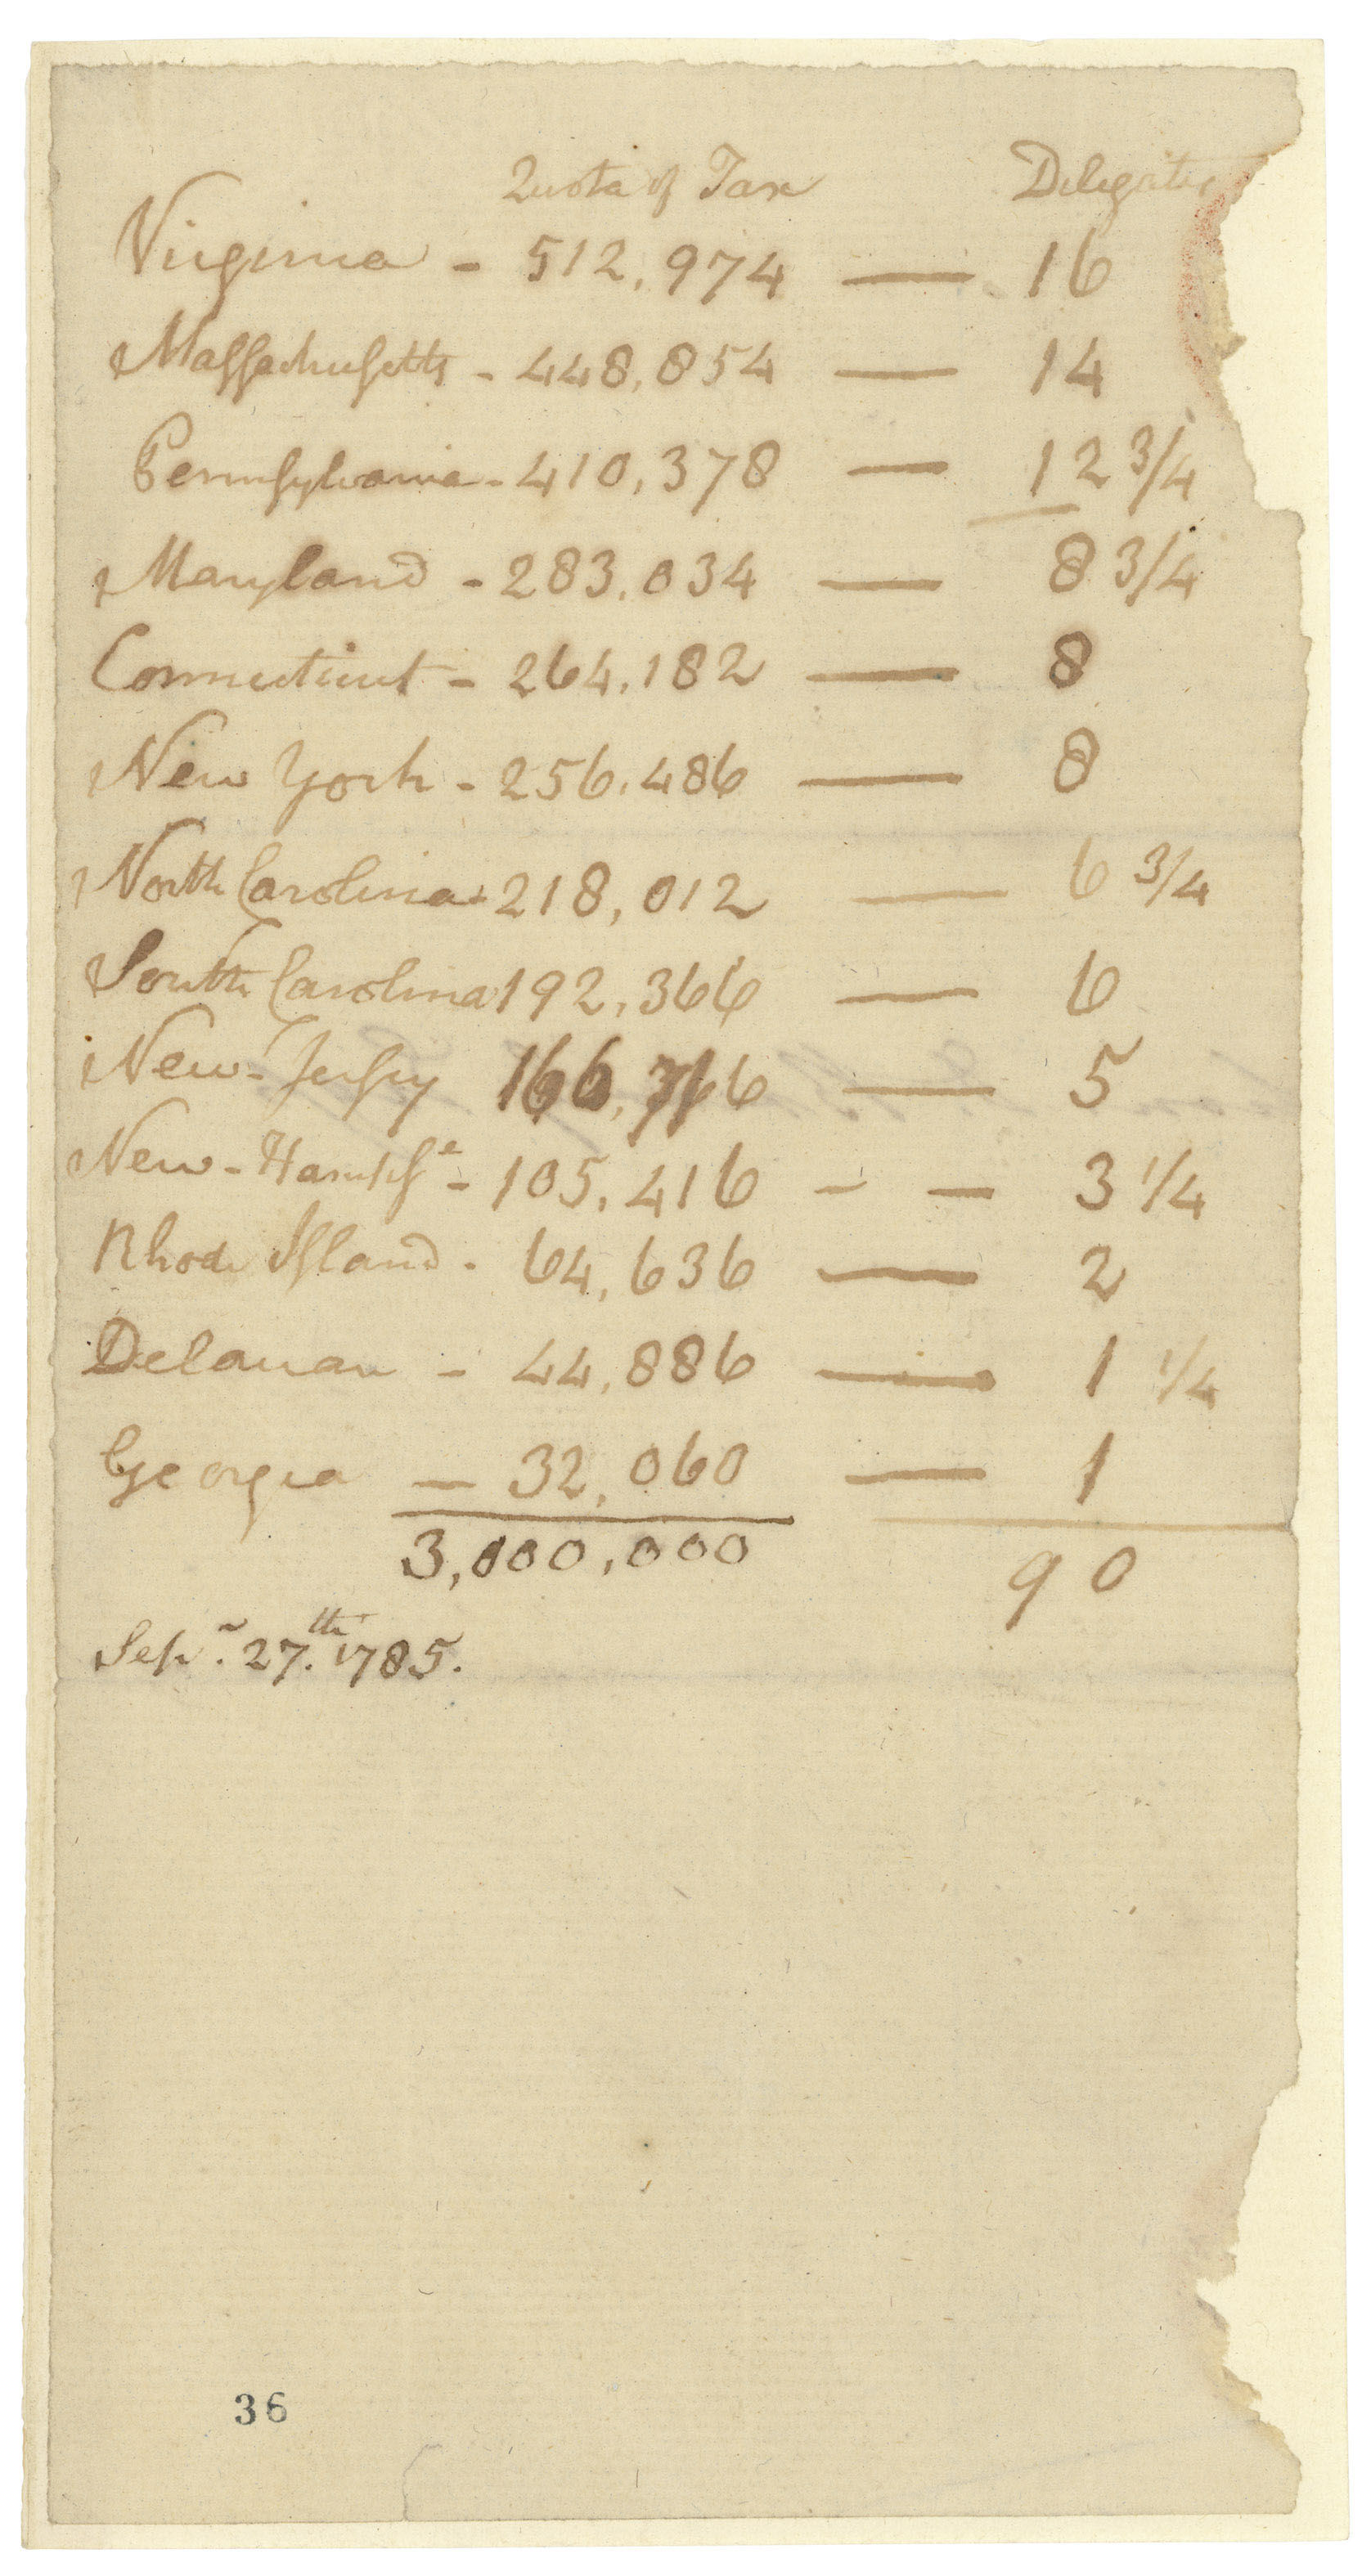 Quota of Tax Delegates
Virginia - 512,974 — 16
Massachusetts - 448,854 — 14
Pennsylvania - 410,378 — 12 3/4
Maryland - 283,034 — 8 3/4
Connecticut - 264,182 — 8
New York - 256,486 — 8
North Carolina - 218,012 — 6 3/4
South Carolina 192,366 — 6
New-Jersey 166,716 — 5
New-Hampse - 105,416 - — 3 1/4
Rhode Island - 64,636 — 2
Delawar - 44,886 — 1 1/4
Georgia — 32,060 — 1
3,000,000 90
Sepr. 27.th 1785.
36